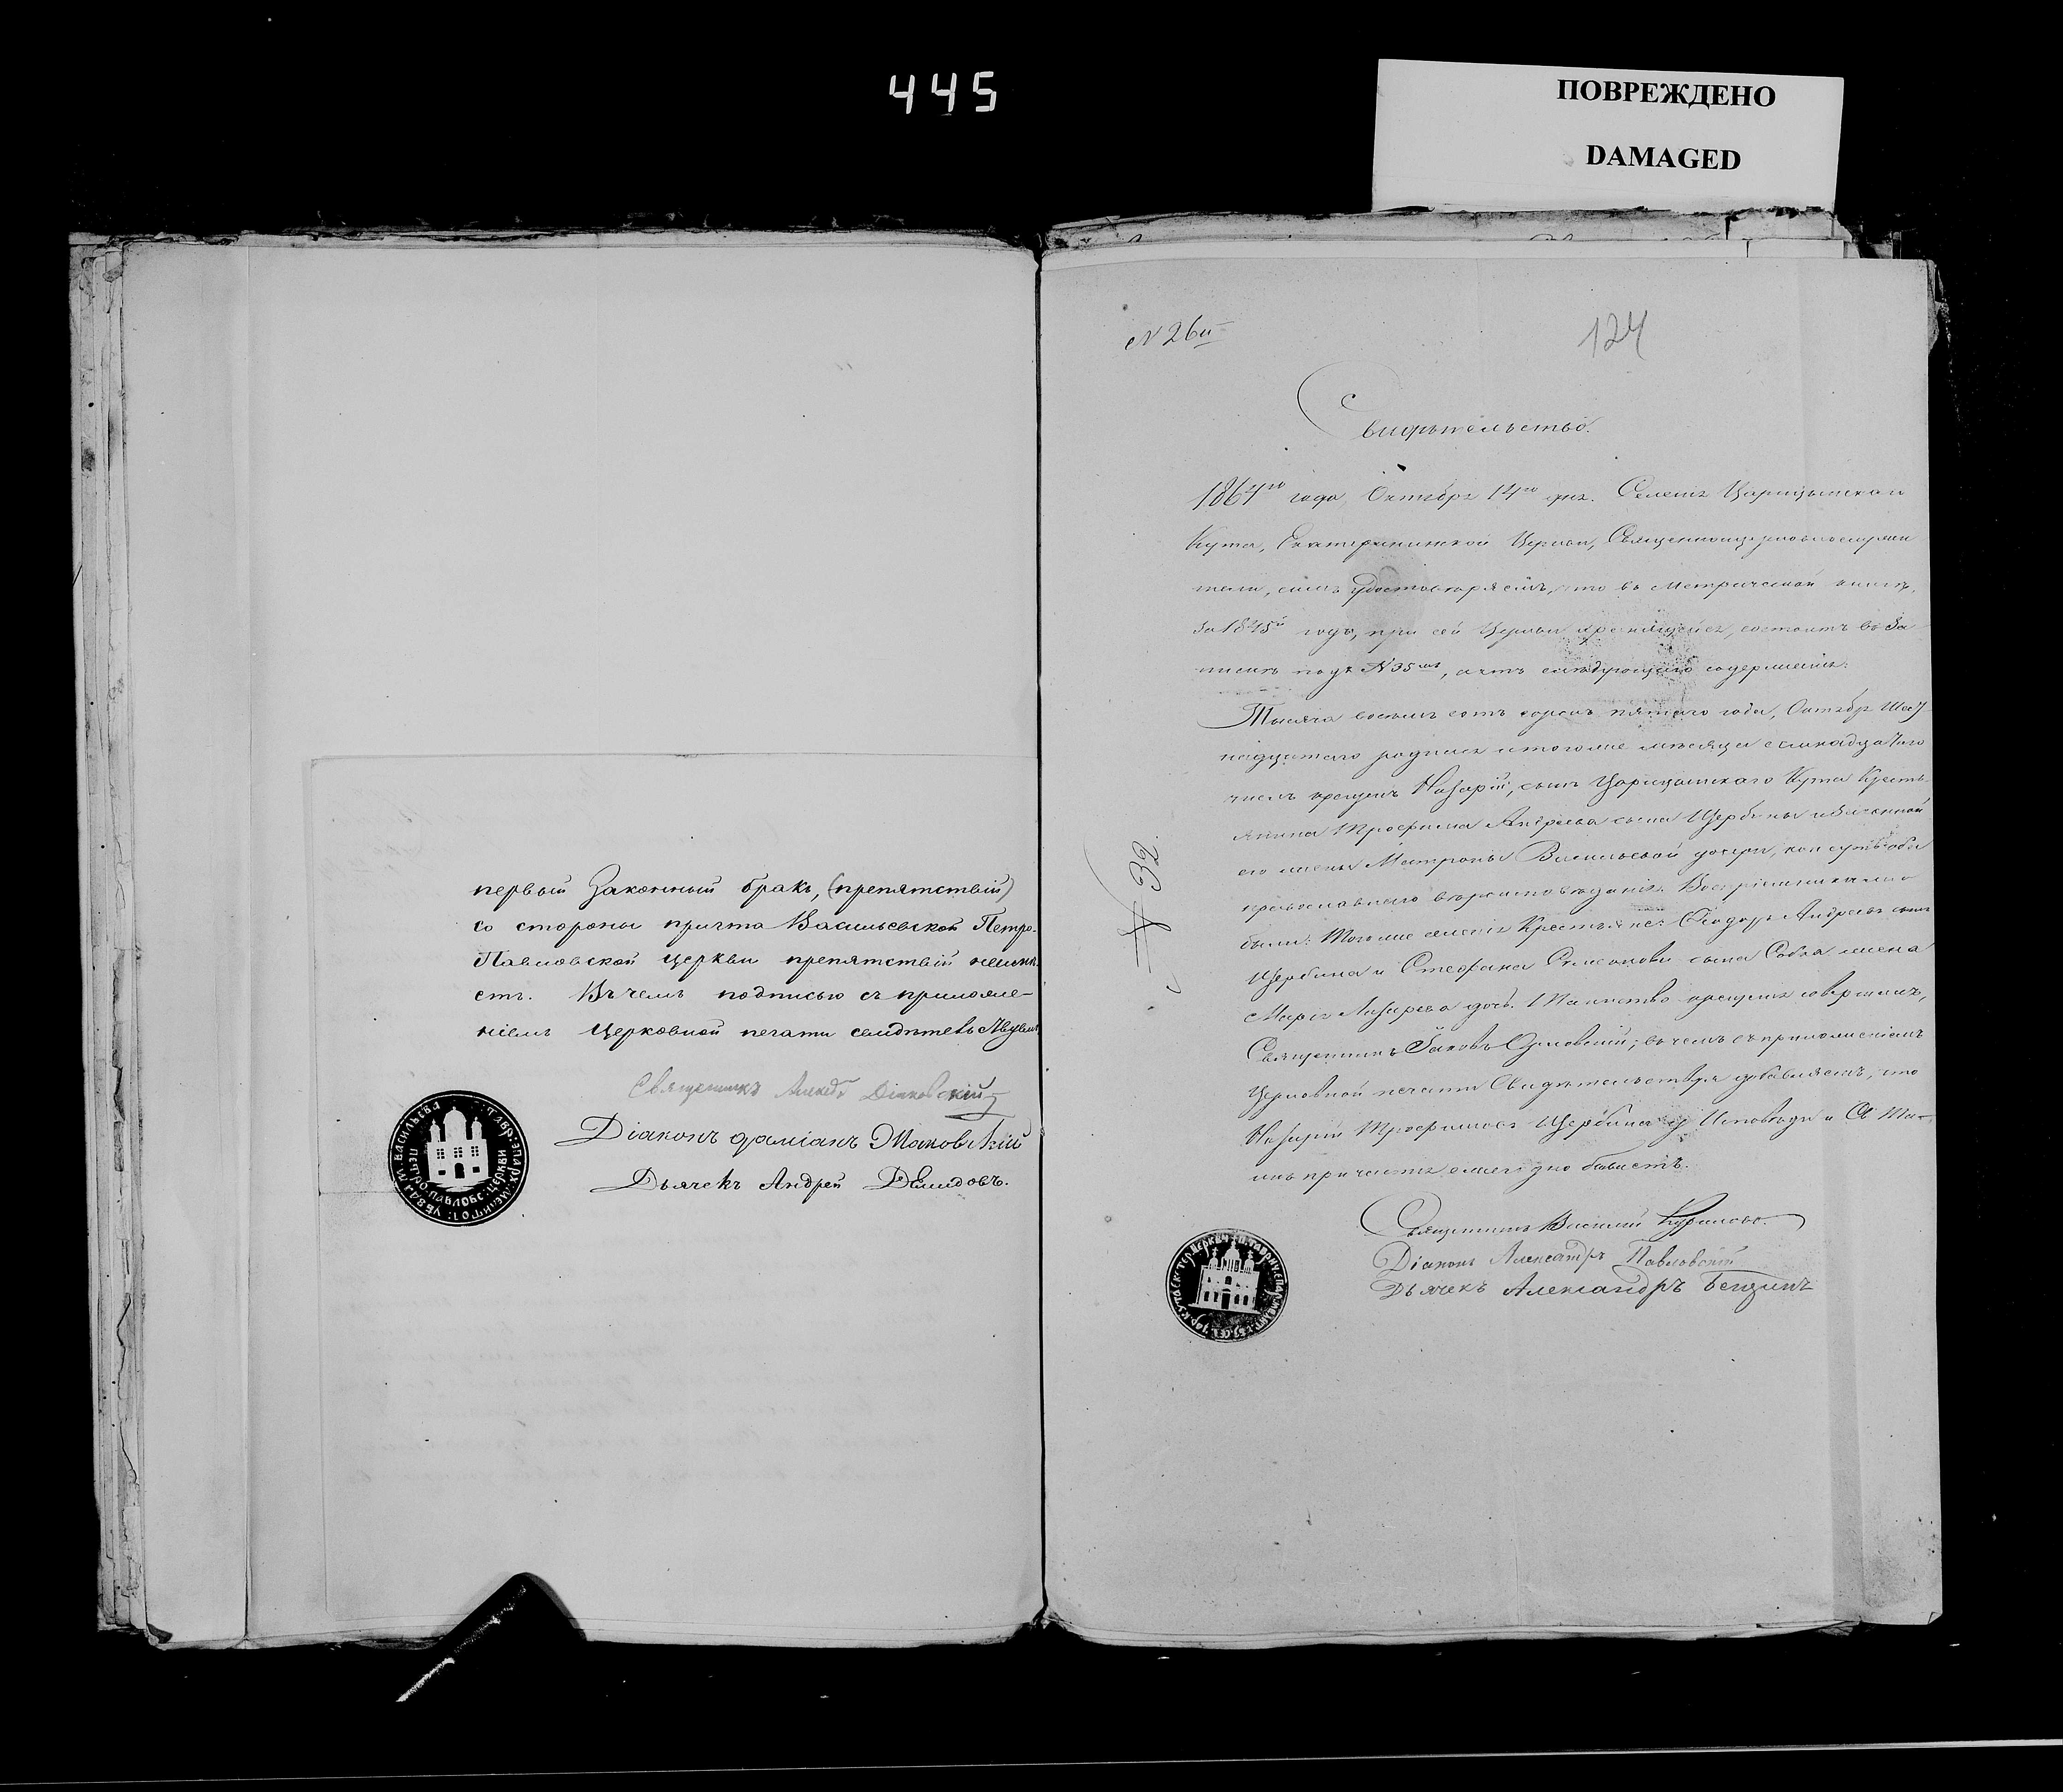 445
ПОВРЕЖДЕНО
DAMAGED
первый Законный бракъ, (препятствій)
со стороны причта Васильевской Петро-
Павловской церкви препятствій неимѣ-
етъ. Въ чемъ подписью съ приложе-
ніемъ Церковной печати свидѣтельствуемъ
Священникъ Діаковскій
Діаконъ Даміанъ Маковскій
Дьячекъ Андрей Демидовъ.
N 26й
124
Свидѣтельство.
1864го года, Октября 14го дня. Селенія Царицынскаго
Кута, Екатерининской Церкви, Священноцерковнослужи
тели, симъ удостовѣряемъ, что въ Метрической книгѣ,
За 1845й годъ, при сей Церкви хранящейся, состоитъ въ За
писяхъ подъ N 35мъ, актъ слѣдующаго содержанія:
Тысяча восемь сотъ сорокъ пятаго года, Октября Шест
надцатаго родился и тогоже мѣсяца семнадцатаго
числа крещенъ Назарій, сынъ Царицынскаго Кута Кресть-
янина Трофима Андреева сына Щербины и Законной
его жены Матроны Васильевой дочери, кои суть оба
православнаго вѣроисповѣданія. Воспріемниками
были: Тогоже селенія Крестьяне: Ѳеодоръ Андреевъ сынъ
Щербина и Стефана сына жена
Марія Лазарева дочь. Таинство крещенія совершилъ,
Священникъ Іаковъ Орловскій; въ чемъ съ приложеніемъ
Церковной печати Свидѣтельствуя добавляемъ, что
Назарій Трофимовъ Щербина у Исповѣди и Св. Та-
инъ причастія ежегодно бываетъ.
N 32.
Священникъ Василій Куриловъ.
Діаконъ Александръ Павловскій
Дьячекъ Александръ